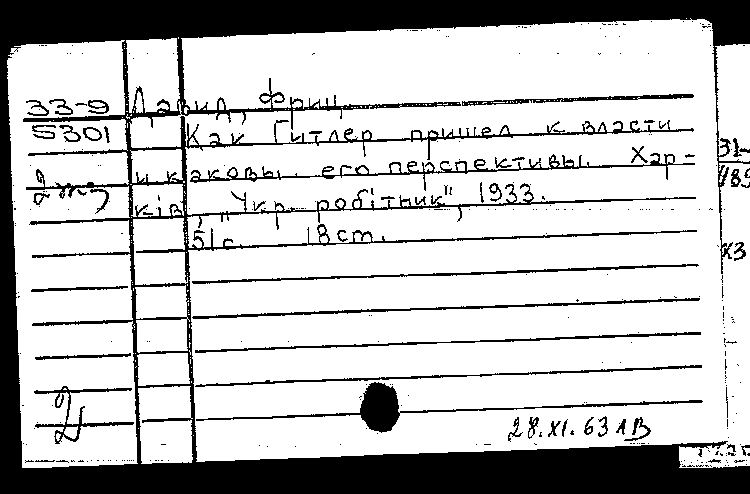 33-9 Давид, Фриц.
5301 Как Гитлер пришел к власти
и каковы его перспективы. Хар-
ків, „Укр. робітник", 1933.
51 с. 18 cm.
28.XI.63
31-